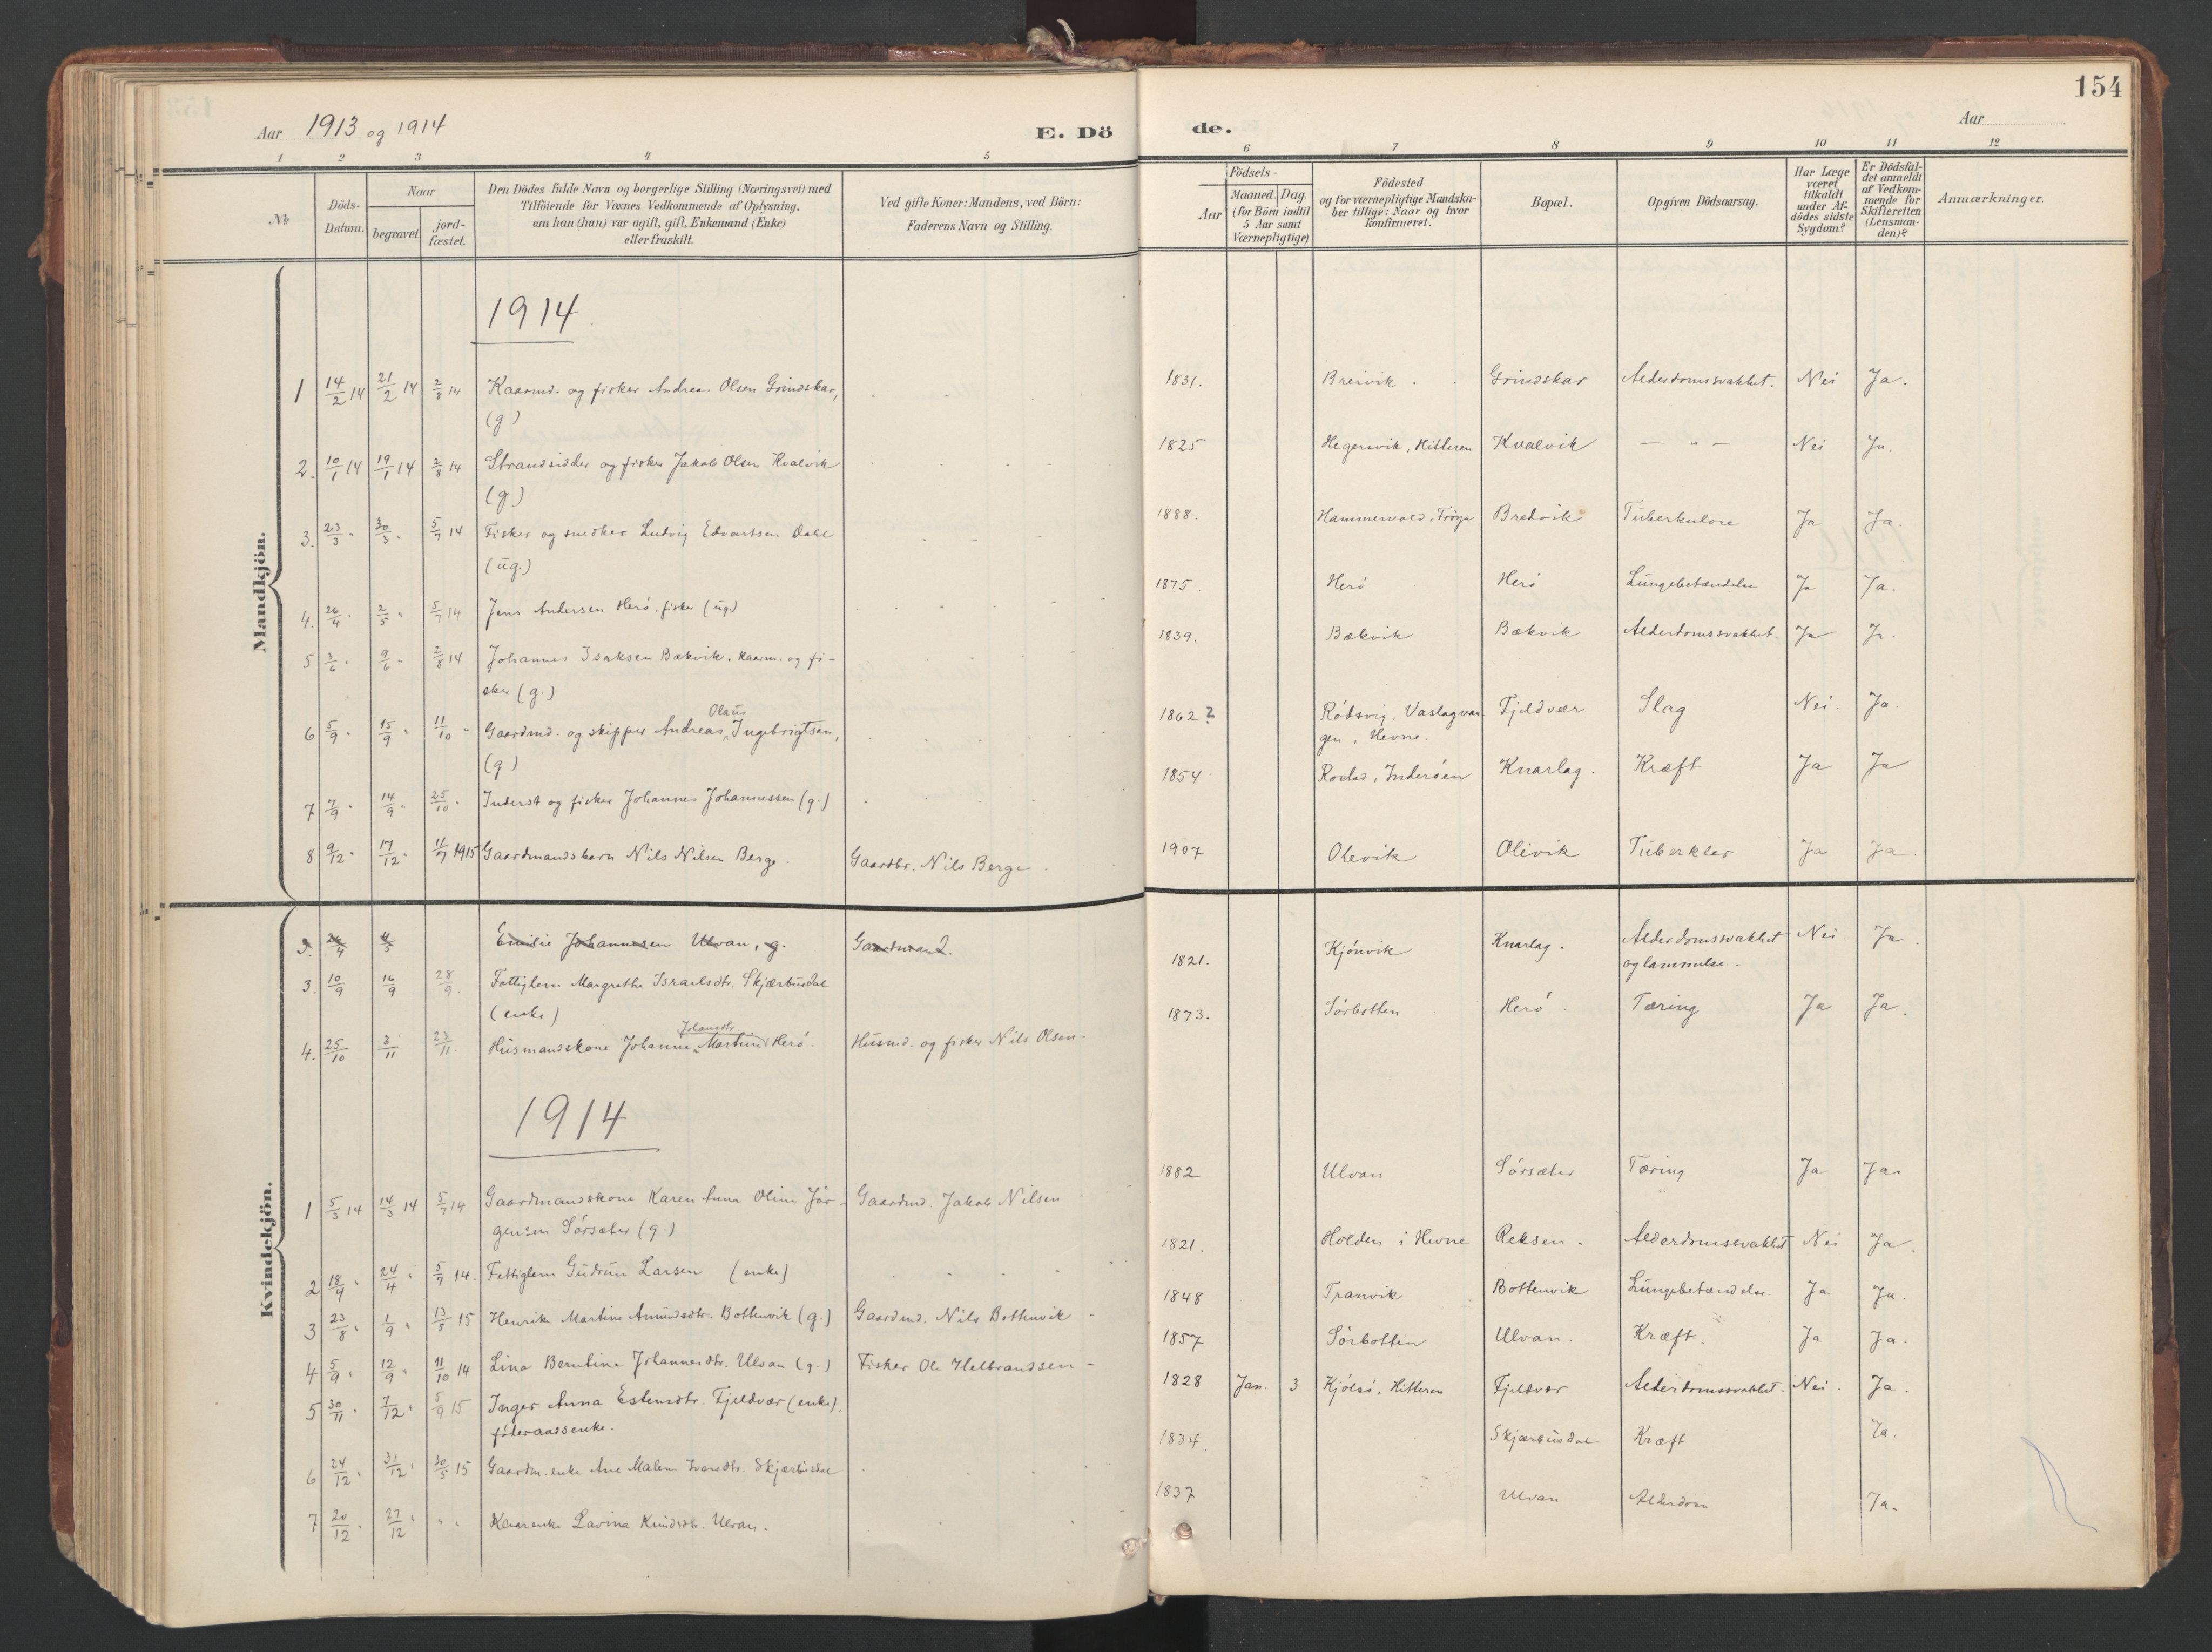 154
Aar 1913 og 1914
E. Dö
de.
Aar
1 2 3 4 5
6 7 8 9 10 11 12
№
Döds-
Datum.
Naar
begravet.
jord-
fæstet.
Den Dödes fulde Navn og borgerlige Stilling (Næringsvei) med
Tilföiende for Voxnes Vedkommende af Oplysning,
om han (hun) var ugift, gift, Enkemand (Enke)
eller fraskilt.
Ved gifte Koner: Mandens, ved Börn:
Faderens Navn og Stilling.
Födsels-
Aar
Maaned. Dag.
(for Börn indtil
5 Aar samt
Værnepligtige)
Födested
og for værnepligtige Mandska-
ber tillige: Naar og hvor
konfirmeret.
Bopæl.
Opgiven Dödsaarsag.
Har Læge
været
tilkaldt
under Af-
dödes sidste
Sygdom?
Er Dödsfal-
det anmeldt
af Vedkom-
mende for
Skifteretten
(Lensman-
den)?
Anmærkninger.
Mandkjön.
1914.
1 14/2 14 21/2 14 2/8 14 Kaarmd. og fisker Andreas Olsen Grindskar, 1831. Breivik Grindskar Alderdomssvakhet. Nei Ja.
(g)
2. 10/1 14 19/1 14 2/8 14 Strandsidder og fisker Jakob Olsen Kvalvik 1825 Hegersvik, Hitteren Kvalvik — " — Nei Ja.
(g)
3. 23/3 " 30/3 " 5/7 14 Fisker og snedker Ludvig Edvartsen Dahl 1888. Hammervold, Fröya Bredvik Tuberkulose Ja Ja.
(ug.)
4. 26/4 " 2/5 " 5/7 14 Jens Andersen Herö. fisker (ug) 1875. Herö Herö Lungebetændelse Ja Ja.
5 3/6 " 9/6 " 2/8 14 Johannes Isaksen Bækvik. Kaarm. og fi- 1839. Bækvik Bækvik Alderdomssvakhet. Ja Ja.
sker (g.)
Olaus
6 5/9 " 15/9 " 11/10 " Gaardmd. og skipper Andreas Ingebrigtsen, 1862? Rödsvig, Vaslagvan Fjeldvær Slag Nei. Ja.
(g) gen, Hevne.
7 7/9 " 14/9 " 25/10 " Inderst og fisker Johannes Johannessen (g.) 1854 Rostad, Inderöen Knarlag. Kræft Ja Ja
8 9/12 " 17/12 " 11/7 1915 Gaardmandsbarn Nils Nilsen Berge. Gaardbr. Nils Berge. 1907 Olevik Olevik Tuberkler Ja Ja.
Kvindekjön.
26/4 4/5 Emilie Johannesen Ulvan, g. Gaardmand.
3. 10/9 16/9 28/9. Fattiglem Margrethe Israelsdtr. Skjærbusdal 1821. Kjönvik Knarlag. Alderdomssvakhet Nei Ja.
(enke) og lammelse.
Johansdtr.
4. 25/10 3/11 23/11. Husmandskone Johanna Martine Herö. Husmd. og fisker Nils Olsen. 1873. Sörbotten Herö Tæring Ja Ja.
1914
1 5/3 14 14/3 14 5/7 14 Gaardmandskone Karen Anna Oline Jör- Gaardmd. Jakob Nilsen 1882 Ulvan Sörsæter Tæring Ja Ja
gensen Sörsæter (g.)
2 18/4 " 24/4 " 5/7 14. Fattiglem Gudrun Larsen (enke) 1821. Holden i Hevne Reksen. Alderdomssvakhet Nei Ja.
3 23/8 " 1/9 " 13/5 15 Henrike Martine Amundsdtr. Bottenvik (g.) Gaardmd. Nils Bottenvik 1848 Tranvik Bottenvik Lungebetændelse. Ja Ja.
4 5/9 " 12/9 " 11/10 14 Lina Berntine Johannesdtr. Ulvan (g.) Fisker Ole Helbrandsen 1857 Sörbotten Ulvan. Kræft. Ja Ja.
5 30/11 " 7/12 " 5/9 15 Inger Anna Estensdtr. Fjeldvær (enke), 1828 Jan. 3 Kjölsö, Hitteren Fjeldvær Alderdomssvakhet. Nei. Ja.
föderaadsenke.
6 24/12 " 31/12 " 30/5 15 Gaardm. enke Ane Malena Ivarsdtr. Skjærbusdal 1834. Skjærbusdal Kræft Ja.
7 20/12 " 27/12 " " " Kaarenke Lavina Knudsdtr. Ulvan. 1837 Ulvan Alderdom Ja.